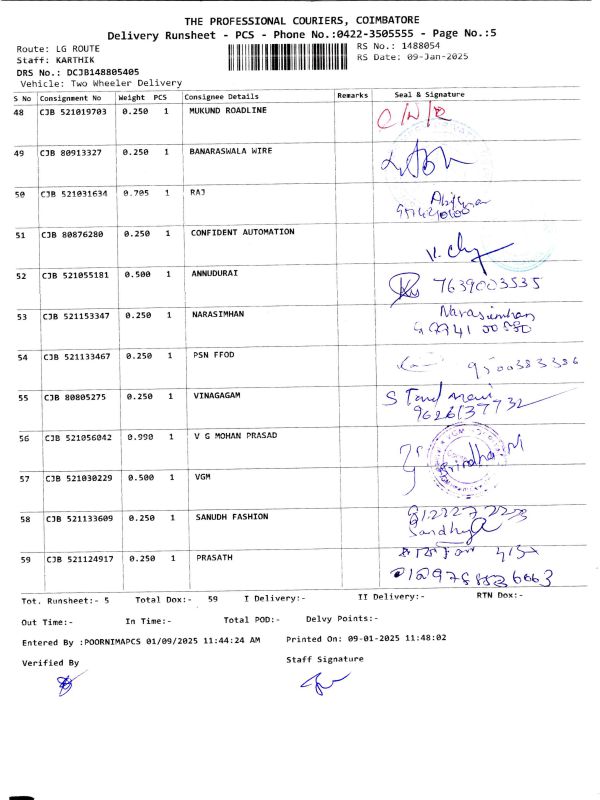 THE PROFESSIONAL COURIERS, COIMBATORE
Delivery Runsheet - PCS - Phone No.:0422-3505555 - Page No.:5
Route: LG ROUTE RS No.: 1488054
Staff: KARTHIK RS Date: 09-Jan-2025
DRS No.: DCJB148805405
Vehicle: Two Wheeler Delivery
S No Consignment No Weight PCS Consignee Details Remarks Seal & Signature
48 CJB 521019703 0.250 1 MUKUND ROADLINE
49 CJB 80913327 0.250 1 BANARASWALA WIRE
50 CJB 521031634 0.705 1 RAJ
51 CJB 80876280 0.250 1 CONFIDENT AUTOMATION
52 CJB 521055181 0.500 1 ANNUDURAI 7639003535
53 CJB 521153347 0.250 1 NARASIMHAN Narasimhan
54 CJB 521133467 0.250 1 PSN FFOD
55 CJB 80805275 0.250 1 VINAGAGAM 9626137732
56 CJB 521056042 0.990 1 V G MOHAN PRASAD
57 CJB 521030229 0.500 1 VGM
58 CJB 521133609 0.250 1 SANUDH FASHION
59 CJB 521124917 0.250 1 PRASATH
Tot. Runsheet:- 5 Total Dox:- 59 I Delivery:- II Delivery:- RTN Dox:-
Out Time:- In Time:- Total POD:- Delvy Points:-
Entered By :POORNIMAPCS 01/09/2025 11:44:24 AM Printed On: 09-01-2025 11:48:02
Verified By Staff Signature